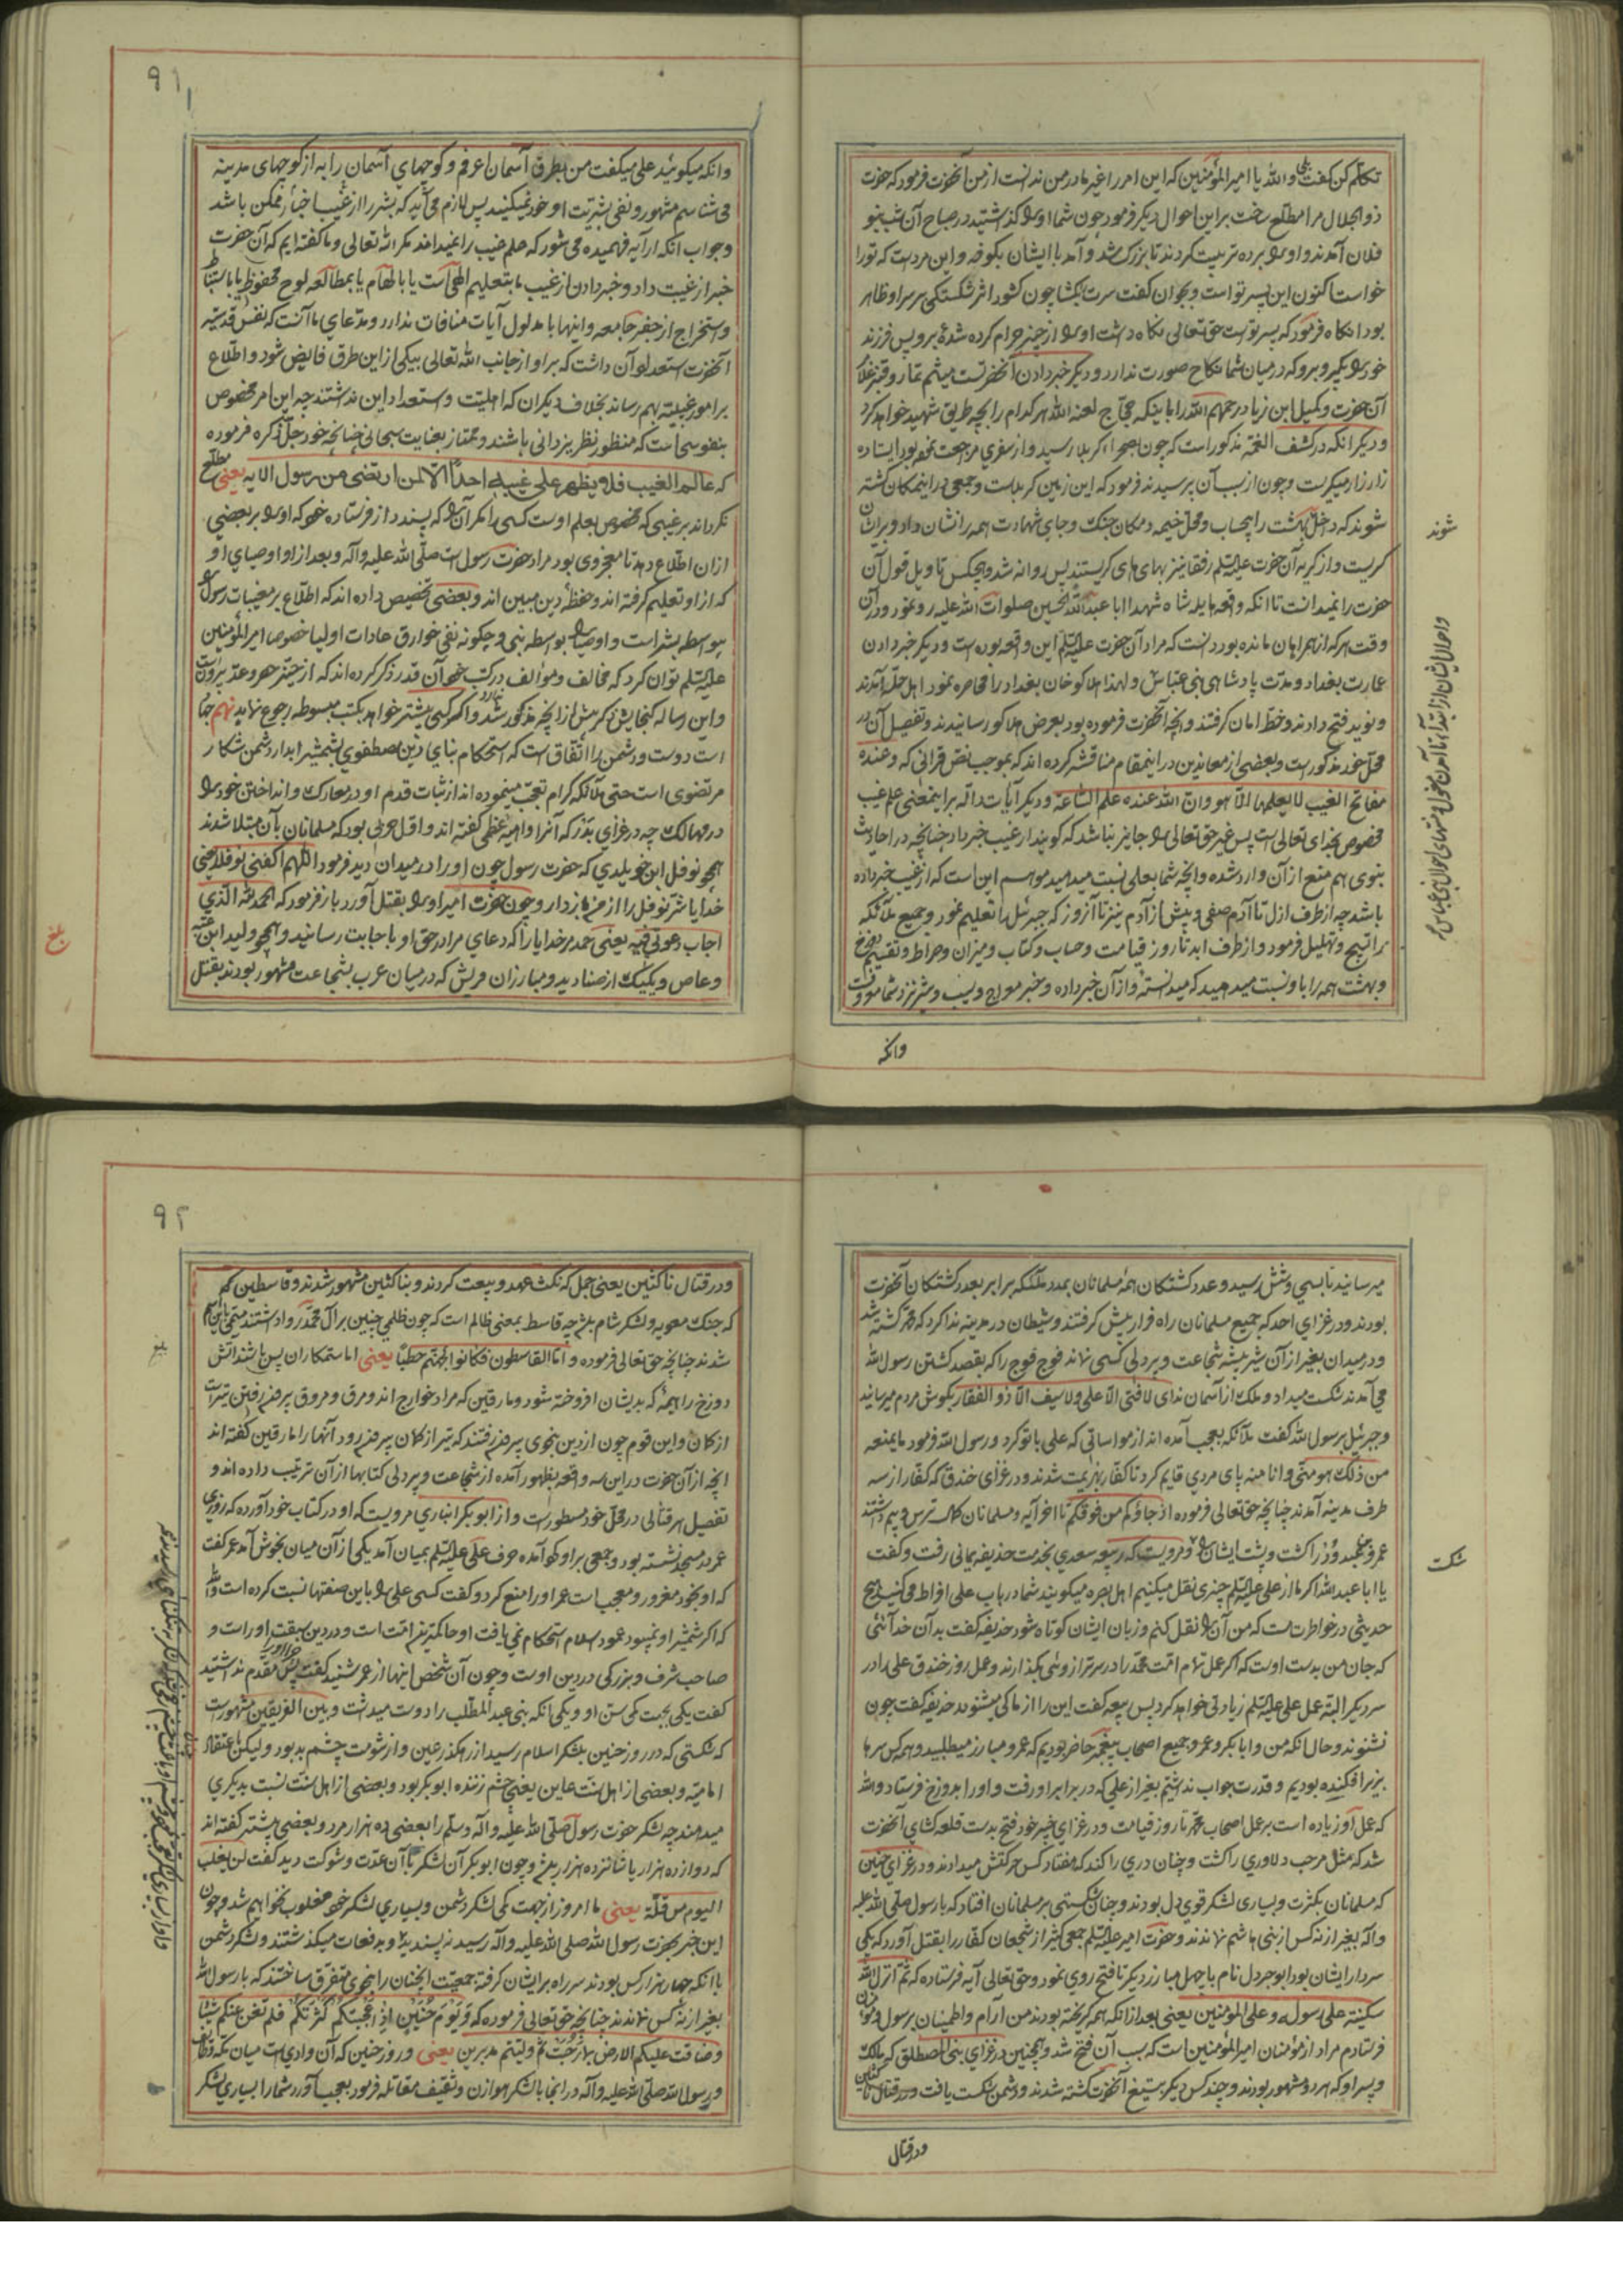 تکلم کن گفت بلی والله یا امیرالمؤمنین که این امر را غیر مادر من ندانست از من آنحضرت فرمود که حضرت
ذوالجلال مرا مطلع ساخت براین احوال دیگر فرمود چون شما او را گذاشتید در صباح آن شب بنو
فلان آمدند و او را برده تربیت کردند تا بزرگ شد و آمد با ایشان بکوفه و این مردست که تو را
خواست اکنون این پسر تو است و بجوان گفت سرت بگشا چون گشود اثر شکستگی بر سر او ظاهر
بود آنگاه فرمود که پسر توست حق تعالی نگاه داشت او را از چیز حرام کرده شده برو پس فرزند
خود را بگیر و برو که در میان شما نکاح صورت ندارد و دیگر خبر دادن آنحضرتست میثم تمار و قنبر غلام
آن حضرت و کمیل ابن زیاد رحمهم الله را باینکه حجاج لعنه الله هر کدام را بچه طریق شهید خواهد کرد
و دیگر آنکه در کشف الغمه مذکور است که چون بصحراء کربلا رسید و از سفری مراجعت نموده بود ایستاده
زار زار میگریست و چون از سبب آن پرسیدند فرمود که این زمین کربلاست و جمعی در اینمکان کشته
شوند که داخل بهشت را بیحساب و محل خیمه و مکان جنک و جای شهادت همه را نشان داد و بر ایشان
گریست و از گریه آن حضرت علیه السلم رفقا نیز بهای های گریستند پس روانه شد و هیچکس تاویل قول آن
حضرت را نمیدانست تا آنکه واقعه هایله شاه شهدا ابا عبدالله الحسین صلوات الله علیه رو نمود و در آن
وقت هر که از همراهان مانده بود دانست که مراد آن حضرت علیه السلم این واقعه بوده است و دیگر خبر دادن
عمارت بغداد و مدت پادشاهی بنی عباس و لهذا هلاکو خان بغداد را محاصره نمود اهل حله آمدند
و نوید فتح دادند و خط امان گرفتند و آنچه آنحضرت فرموده بود بعرض هلاکو رسانیدند و تفصیل آن در
محل خود مذکور است و بعضی از معاندین در اینمقام مناقشه کرده اند که بموجب نص قرانی که و عنده
مفاتح الغیب لا یعلمها الا هو و ان الله عنده علم الساعة و دیگر آیات داله بر اینمعنی علم غیب
مخصوص بخدای تعالی است پس غیر حق تعالی را جایز نباشد که گویند از غیب خبر داد چنانچه در احادیث
نبوی هم منع از آن وارد شده و آنچه شما بعلی نسبت میدهید موهم این است که از غیب خبر داده
باشد چه از طرف ازل تا آدم صفی و پیش از آدم نیز تا آنروز که جبرئیل را تعلیم نمود و جمیع ملائکه
را تسبیح و تهلیل فرمود و از طرف ابد تا روز قیامت و حساب و کتاب و میزان و صراط و تقسیم دوزخ
و بهشت همه را باو نسبت میدهید که میدانسته و از آن خبر داده و خبر معراج و
وانکه
شوند
واحوال ایشان از ابتداء تا
وانکه میگوئید علی میگفت من بطرق آسمان اعرفم و کوچهای آسمان را به از کوچهای مدینه
می شناسم مشهور و نفی بشریت او خود نمیکنید پس لازم می آید که بشر را از غیب اخبار ممکن باشد
و جواب آنکه از آیه فهمیده می شود که علم غیب را نمیداند مگر الله تعالی و ما گفته ایم که آن حضرت
خبر از غیب داد و خبر دادن از غیب ما بتعلیم الهی است یا بالهام یا بمطالعه لوح محفوظ یا باستنباط
و استخراج از جفر جامعه و اینها با مدلول آیات منافات ندارد و مدعای ما آنست که نفس قدسیه
آنحضرت استعداد آن داشت که بر او از جانب الله تعالی بیکی از این طرق فایض شود و اطلاع
بر امور غیبیه بهم رساند بخلاف دیگران که اهلیت و استعداد این نداشتند چه این امر مخصوص
بنفوسی است که منظور نظر یزدانی باشند و ممتاز بعنایت سبحانی چنانچه خود جل ذکره فرموده
که عالم الغیب فلا یظهر علی غیبه احداً الا من ارتضی من رسول الایه یعنی مطلع
نگرداند بر غیبی که مخصوص بعلم اوست کسی را مگر آن را که پسندد از فرستاده خود که او را بر بعضی
از آن اطلاع دهد تا معجز وی بود مراد حضرت رسول است صلی الله علیه وآله و بعد از او اوصیای او
که از او تعلیم گرفته اند و حفظه دین مبین اند و بعضی تخصیص داده اند که اطلاع بر مغیبات رسول را
بیواسطه بشر است و اوصیا را بواسطه نبی و چگونه نفی خوارق عادات اولیا خصوصا امیرالمؤمنین
علیه السلم توان کرد که مخالف و موالف در کتب خود آن قدر ذکر کرده اند که از حیز حصر و عد بیرونست
و این رساله گنجایش ذکر بیش از آنچه مذکور شد ندارد و اگر کسی بیشتر خواهد بکتب مبسوطه رجوع نماید نهم جهاد
است دوست و دشمن را اتفاق است که استحکام بنای دین مصطفوی بشمشیر ابدار دشمن شکار
مرتضوی است حتی ملائکه کرام تعجب مینموده اند از ثبات قدم او در معارک و انداختن خود را
در مهالک چه در غزای بدر که آنرا داهیه عظمی گفته اند و اول حربی بود که مسلمانان بآن مبتلا شدند
همچو نوفل ابن خویلدی که حضرت رسول چون او را در میدان دید فرمود اللهم اکفنی نوفلا یعنی
خدایا شر نوفل را از من باز دار و چون حضرت امیر او را بقتل آورد باز فرمود که الحمدلله الذی
اجاب دعوتی فیه یعنی حمد مر خدایا را که دعای مرا در حق او باجابت رسانید و همچو ولید ابن عتبه
و عاص و یکیک از صنادید و مبارزان قریش که در میان عرب بشجاعت مشهور بودند بقتل
بلغ
۹۱
میرسانید تا بسی و شش رسید و عدد کشتگان همه مسلمانان بمدد ملائکه برابر بعدد کشتگان آنحضرت
بودند و در غزای احد که جمیع مسلمانان راه فرار پیش گرفتند و شیطان در مدینه ندا کرد که محمد کشته شد
و در میدان بغیر از آن شیر بیشه شجاعت و پردلی کسی نماند فوج فوج را که بقصد کشتن رسول الله
می آمدند شکست میداد و ملک از آسمان ندای لا فتی الا علی و لا سیف الا ذو الفقار بگوش مردم میرسانید
و جبرئیل برسول الله گفت ملائکه بعجب آمده اند از مواساتی که علی با تو کرد و رسول الله فرمود ما یمنعه
من ذلک هو منی و انا منه پای مردی قایم کرد تا کفار بهزیمت شدند و در غزای خندق که کفار از سه
طرف مدینه آمدند چنانچه حق تعالی فرموده اذ جاؤکم من فوقکم تا اخر آیه و مسلمانان کمال ترس و بیم داشتند
عمرو بن عبدود را کشت و پشت ایشان را و مرویست که ربیعه سعدی بخدمت حذیفه یمانی رفت و گفت
یا ابا عبدالله اگر ما از علی علیه السلم چیزی نقل میکنیم اهل بصره میگویند شما در باب علی افراط می کنید هیچ
حدیثی در خواطرت هست که من آن را نقل کنم و زبان ایشان کوتاه شود حذیفه گفت بدان خدائی
که جان من بدست اوست که اگر عمل تمام امت محمد را در سر ترازوئی بگذارند و عمل روز خندق علی را در
سر دیگر البته عمل علی علیه السلم زیادتی خواهد کرد پس ربیعه گفت این را از ما کی میشنوند حذیفه گفت چون
نشنوند و حال آنکه من و ابابکر و عمر و جمیع اصحاب پیغمبر حاضر بودیم که عمرو مبارز میطلبید و همه کس سرها
بزیر افکنده بودیم و قدرت جواب نداشتیم بغیر از علی که در برابر او رفت و او را بدوزخ فرستاد والله
که عمل او زیاده است بر عمل اصحاب محمد تا روز قیامت و در غزای خیبر خود فتح بدست قلعه گشای آنحضرت
شد که مثل مرحب دلاوری را کشت و چنان دری را کند که هفتاد کس حرکتش میدادند و در غزای حنین
که مسلمانان بکثرت و بسیاری لشکر قوی دل بودند و چنان شکستی بر مسلمانان افتاد که با رسول صلی الله علیه
وآله بغیر از نه کس از بنی هاشم نماندند و حضرت امیر علیه السلم جمعی کثیر از شجعان کفار را بقتل آورد که یکی
سردار ایشان بود ابو جردل نام با چهل مبارز دیگر تا فتح روی نمود و حق تعالی آیه فرستاده که ثم انزل الله
سکینته علی رسوله و علی المؤمنین یعنی بعد از آنکه همه گریخته بودند من آرام و اطمینان برسول و مؤمنان
فرستادم مراد از مؤمنان امیرالمؤمنین است که سبب آن فتح شد و همچنین در غزای بنی المصطلق که مالک
و پسر او که هر دو مشهور بودند و چند کس دیگر بتیغ آنحضرت کشته شدند و دشمن شکست یافت و در قتال ناکثین
ودر قتال
شکست
ودر قتال ناکثین یعنی جمل که نکث عهد و بیعت کردند و بناکثین مشهور شدند و قاسطین
که جنک معویه و لشکر شام باشد چه قاسط بمعنی ظالم است که چون ظلمی چنین بر آل محمد روا داشتند مسمی باین نام
شدند چنانچه حق تعالی فرموده و اما القاسطون فکانوا لجهنم حطباً یعنی اما ستمکاران پس باشند آتش
دوزخ را هیمه که بدیشان افروخته شود و مارقین که مراد خوارج اند و مرق و مروق بیرون رفتن تیر است
از کمان و این قوم چون از دین بنحوی بیرون رفتند که تیر از کمان بیرون رود آنها را مارقین گفته اند
آنچه از آن حضرت در این سه واقعه بظهور آمده از شجاعت و پردلی کتابها از آن ترتیب داده اند و
تفصیل هر قتالی در محل خود مسطور است و از ابوبکر انباری مرویست که او در کتاب خود آورده که روزی
عمر در مسجد نشسته بود و جمعی بر او گرد آمده حرف علی علیه السلم بمیان آمد یکی از آن میان بخوش آمد عمر گفت
که او بخود مغرور و معجب است عمر او را منع کرد و گفت کسی علی را باین صفتها نسبت کرده است والله
که اگر شمشیر او نمیبود عمود اسلام استحکام نمی یافت او حاکمترین امت است و در دین سبقت او راست و
صاحب شرف و بزرگی در دین اوست و چون آن شخص اینها از عمر شنید گفت پس چرا او را مقدم نداشتید
گفت یکی بجهت کمی سن او و یکی آنکه بنی عبدالمطلب را دوست میداشت و بین الفریقین مشهور است
که شکستی که در روز حنین بلشکر اسلام رسید از رهگذر عین و از شومت چشم بد بود و لیکن باعتقاد
امامیه و بعضی از اهل سنت عاین یعنی چشم زننده ابوبکر بود و بعضی از اهل سنت نسبت بدیگری
میدهند چه لشکر حضرت رسول صلی الله علیه وآله وسلم را بعضی ده هزار مرد و بعضی بیشتر گفته اند
که دوازده هزار یا شانزده هزار باشد و چون ابوبکر آن لشکر باآن عدت و شوکت دید گفت لن یغلب
الیوم من قلة یعنی ما امروز از جهت کمی لشکر دشمن و بسیاری لشکر خود مغلوب نخواهیم شد و چون
این خبر بحضرت رسول الله صلی الله علیه وآله رسید نه پسندید و بدفعات میگذشتند و لشکر دشمن
با آنکه چهار هزار کس بودند سر راه بر ایشان گرفته جمعیت آنچنان را بنحوی متفرق ساختند که با رسول الله
بغیر از نه کس نماندند چنانچه حق تعالی فرموده که و یوم حنین اذ اعجبتکم کثرتکم فلم تغن عنکم شیئا
و ضاقت علیکم الارض بما رحبت ثم ولیتم مدبرین یعنی و روز حنین که آن وادی است میان مکه و طایف
و رسول الله صلی الله علیه وآله در آنجا با لشکر هوازن و ثقیف مقاتله فرمود بعجب آورد شما را بسیاری لشکر
۹۲